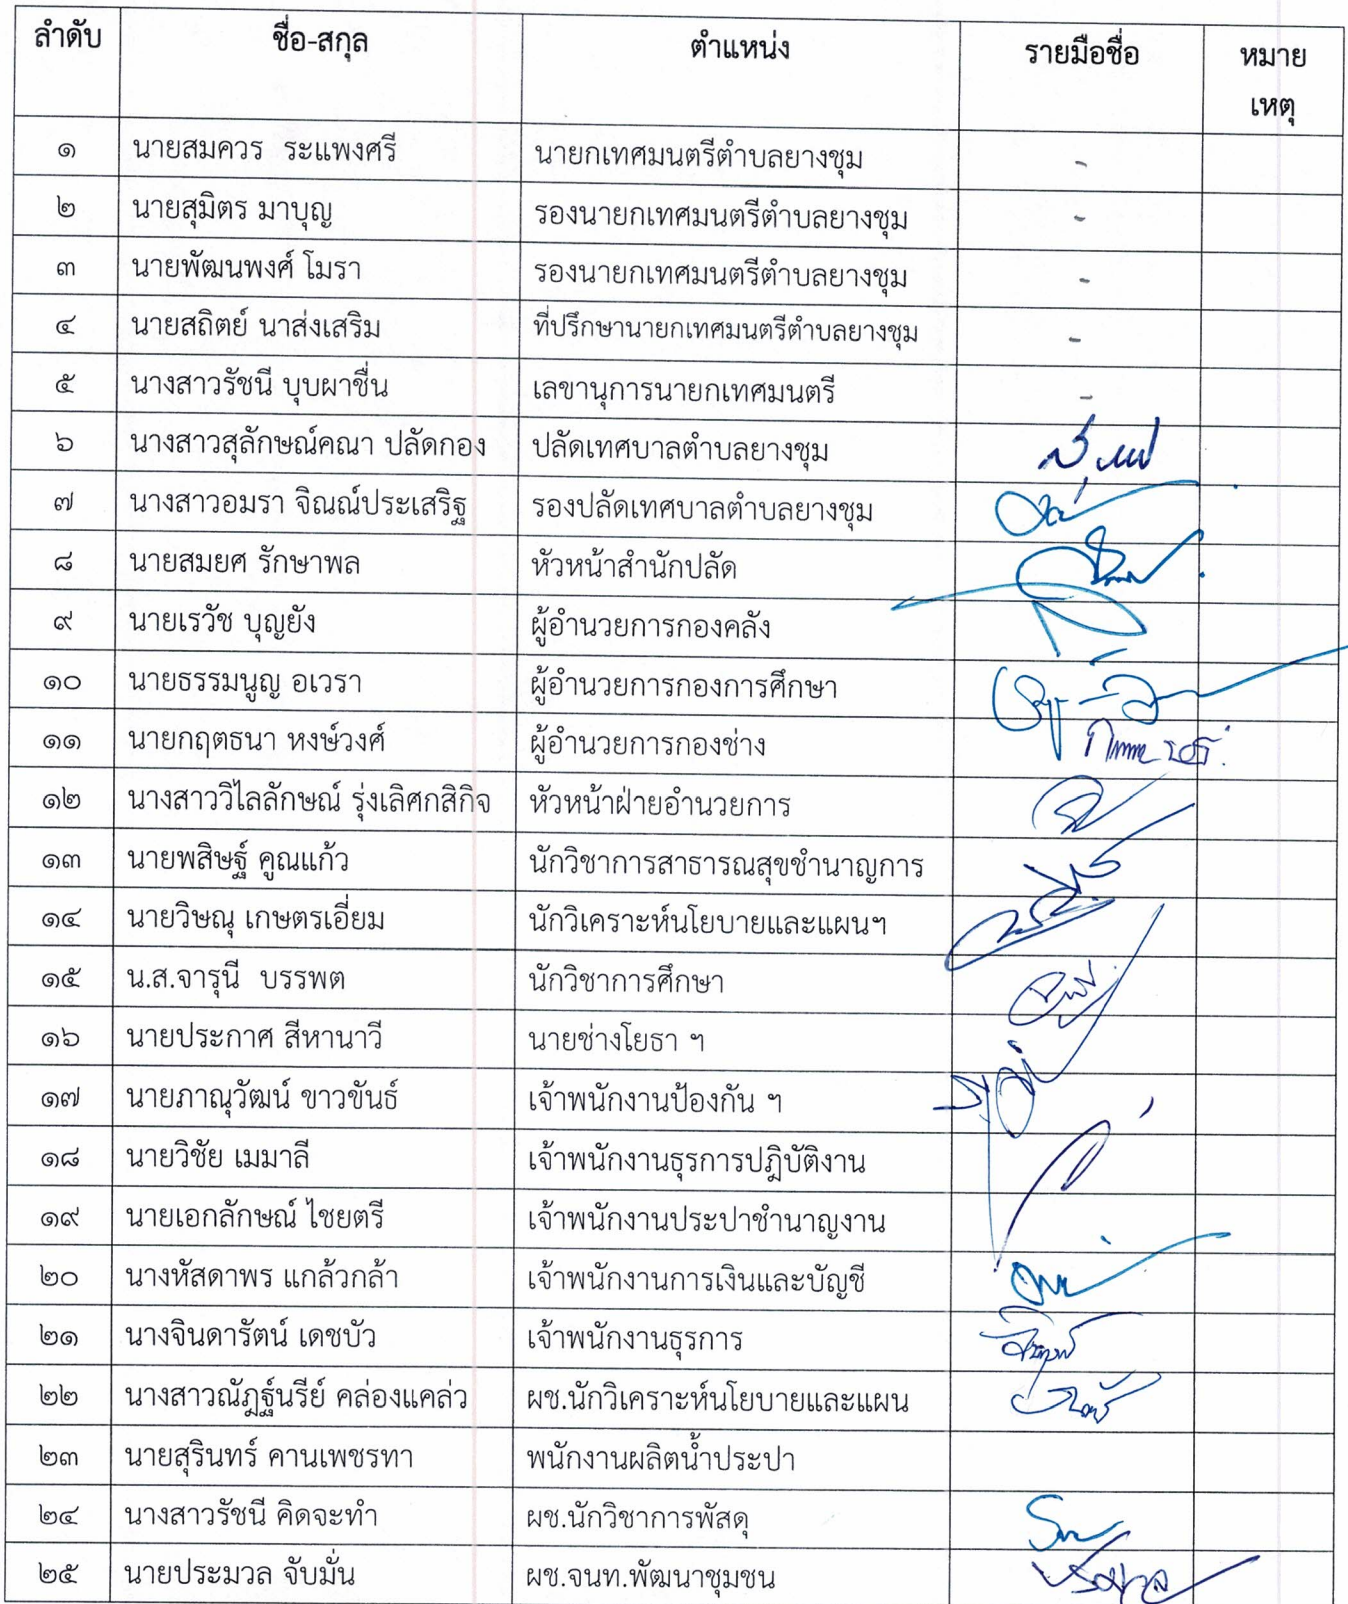 ลำดับ ชื่อ-สกุล ตำแหน่ง รายมือชื่อ หมาย
เหตุ
๑ นายสมควร ระแพงศรี นายกเทศมนตรีตำบลยางชุม -
๒ นายสุมิตร มาบุญ รองนายกเทศมนตรีตำบลยางชุม -
๓ นายพัฒนพงศ์ โมรา รองนายกเทศมนตรีตำบลยางชุม -
๔ นายสถิตย์ นาส่งเสริม ที่ปรึกษานายกเทศมนตรีตำบลยางชุม -
๕ นางสาวรัชนี บุบผาชื่น เลขานุการนายกเทศมนตรี -
๖ นางสาวสุลักษณ์คณา ปลัดกอง ปลัดเทศบาลตำบลยางชุม
๗ นางสาวอมรา จิณณ์ประเสริฐ รองปลัดเทศบาลตำบลยางชุม
๘ นายสมยศ รักษาพล หัวหน้าสำนักปลัด
๙ นายเรวัช บุญยัง ผู้อำนวยการกองคลัง
๑๐ นายธรรมนูญ อเวรา ผู้อำนวยการกองการศึกษา
๑๑ นายกฤตธนา หงษ์วงศ์ ผู้อำนวยการกองช่าง
๑๒ นางสาววิไลลักษณ์ รุ่งเลิศกสิกิจ หัวหน้าฝ่ายอำนวยการ
๑๓ นายพสิษฐ์ คูณแก้ว นักวิชาการสาธารณสุขชำนาญการ
๑๔ นายวิษณุ เกษตรเอี่ยม นักวิเคราะห์นโยบายและแผนฯ
๑๕ น.ส.จารุนี บรรพต นักวิชาการศึกษา
๑๖ นายประกาศ สีหานาวี นายช่างโยธา ฯ
๑๗ นายภาณุวัฒน์ ขาวขันธ์ เจ้าพนักงานป้องกัน ฯ
๑๘ นายวิชัย เมมาลี เจ้าพนักงานธุรการปฏิบัติงาน
๑๙ นายเอกลักษณ์ ไชยตรี เจ้าพนักงานประปาชำนาญงาน
๒๐ นางหัสดาพร แกล้วกล้า เจ้าพนักงานการเงินและบัญชี
๒๑ นางจินดารัตน์ เดชบัว เจ้าพนักงานธุรการ
๒๒ นางสาวณัฎฐ์นรีย์ คล่องแคล่ว ผช.นักวิเคราะห์นโยบายและแผน
๒๓ นายสุรินทร์ คานเพชรทา พนักงานผลิตน้ำประปา
๒๔ นางสาวรัชนี คิดจะทำ ผช.นักวิชาการพัสดุ
๒๕ นายประมวล จับมั่น ผช.จนท.พัฒนาชุมชน ประมวล